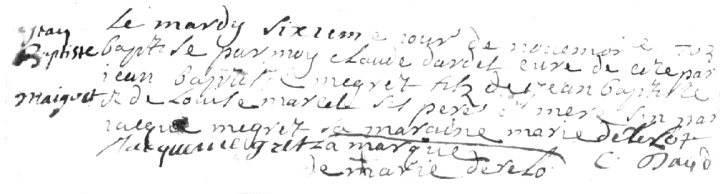 Jean
Baptiste
Maigret
Le mardy sixiem e jour de novemvre
baptise par moy Claude dardet cure de cete par
jean baptiste megret filz de Jean baptiste
et de Louise marcel ses pere et mere sin par
iacque megret sa maraine marie de
Jacque megret la marque
de marie